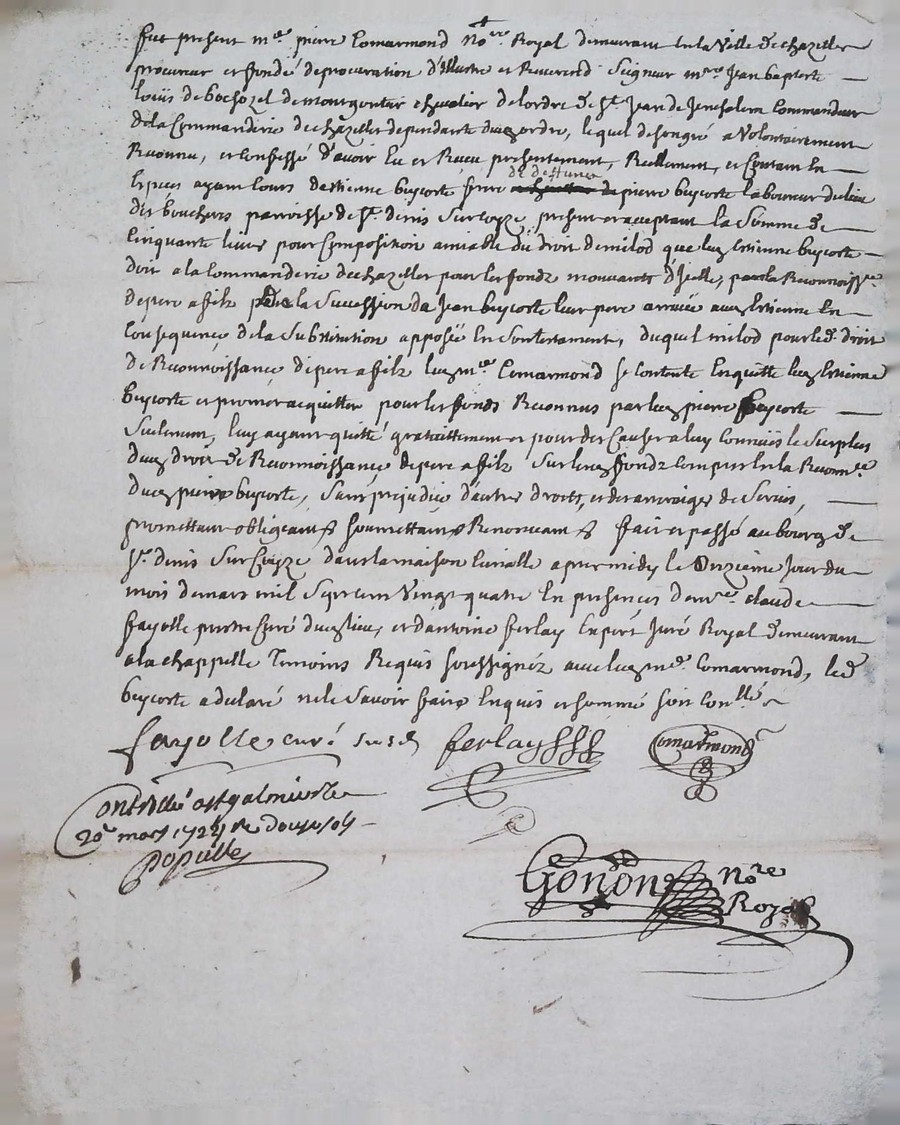 fut present me pierre Comarmond Nore Royal demeurant en la Ville de chazelles
procureur et fondé de procuration d'Illustre et Reverend Seigneur mre Jean baptiste
Louis de bochozel de montgontar chevalier de lordre de St Jean de Jerusalem Commandeur
de la Commanderie de chazelles dependante dud ordre, lequel de son gré a Volontairement
Reconnu, et confessé d'avoir Eu et Receu presentement, Reellement, et Contant En
Especes ayant Cours destienne buycorte frere de deffunct pierre buycorte laboureur du lieu
des bouchers parroisse de St denis Sur Coyze present et acceptant la Somme de
Cinquante livres pour Composition amiable du droit de milod que led Estienne buycorte
doit a la Commanderie de chazelles pour les fondz mouvants d'Icelle, par la Reconnoissce
de pere a filz de la Succession de Jean buycorte leur pere arrivée aud Estienne En
Consequence de la Substitution apposée En Son testament, duquel milod pour led droit
de Reconnoissance de pere a filz led me Comarmond Se Contente En quitte led Estienne
buycorte et promet acquitter pour les fonds Reconnus par led pierre buycorte
Seulement, luy ayant quitté gratuittement et pour des Causes a luy Connües le Surplus
dud droit de Reconnoissance de pere a filz Sur les fondz Compris En la Reconnce
dud pierre buycorte, Sans prejudice d'autres droits, et des arrerages de Servis,
promettant obligeant Soumettant Renonceant fait et passé au bourg de
St denis Sur Coyze dans la maison Curialle apres midy le Onzieme Jour du
mois de mars mil Sept cent Vingt quatre En presences de mre claude
fayolle pretre Curé dud lieu, et dantoine ferlay Expert Juré Royal demeurant
a la chappelle Temoins Requis Soussignéz avec led me Comarmond, led
buycorte a declaré ne le Scavoir faire Enquis et Sommé Soit Conllé
fayolle curé susd ferlay Comarmond
Contrôllé a St galmier le
20e mars 1724
populle
Gonon Nore
Royal